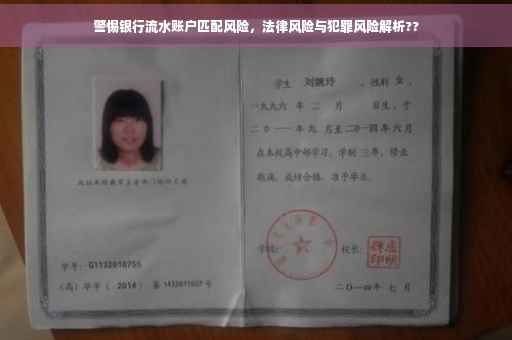 警惕银行流水账户匹配风险，法律风险与犯罪风险解析??
学生 刘婉玲 ，性别 女 ，
一九九六 年 二 月 日生，于
二〇一一 年 九 月至 二〇一四 年 六 月
在本校高中部学习，学制 三 年，修业
期满，成绩合格，准予毕业。
学校： 校长：
学号： G1132010755
（高）毕字（ 2014 ）第 1432011607 号
二〇一四年 七 月